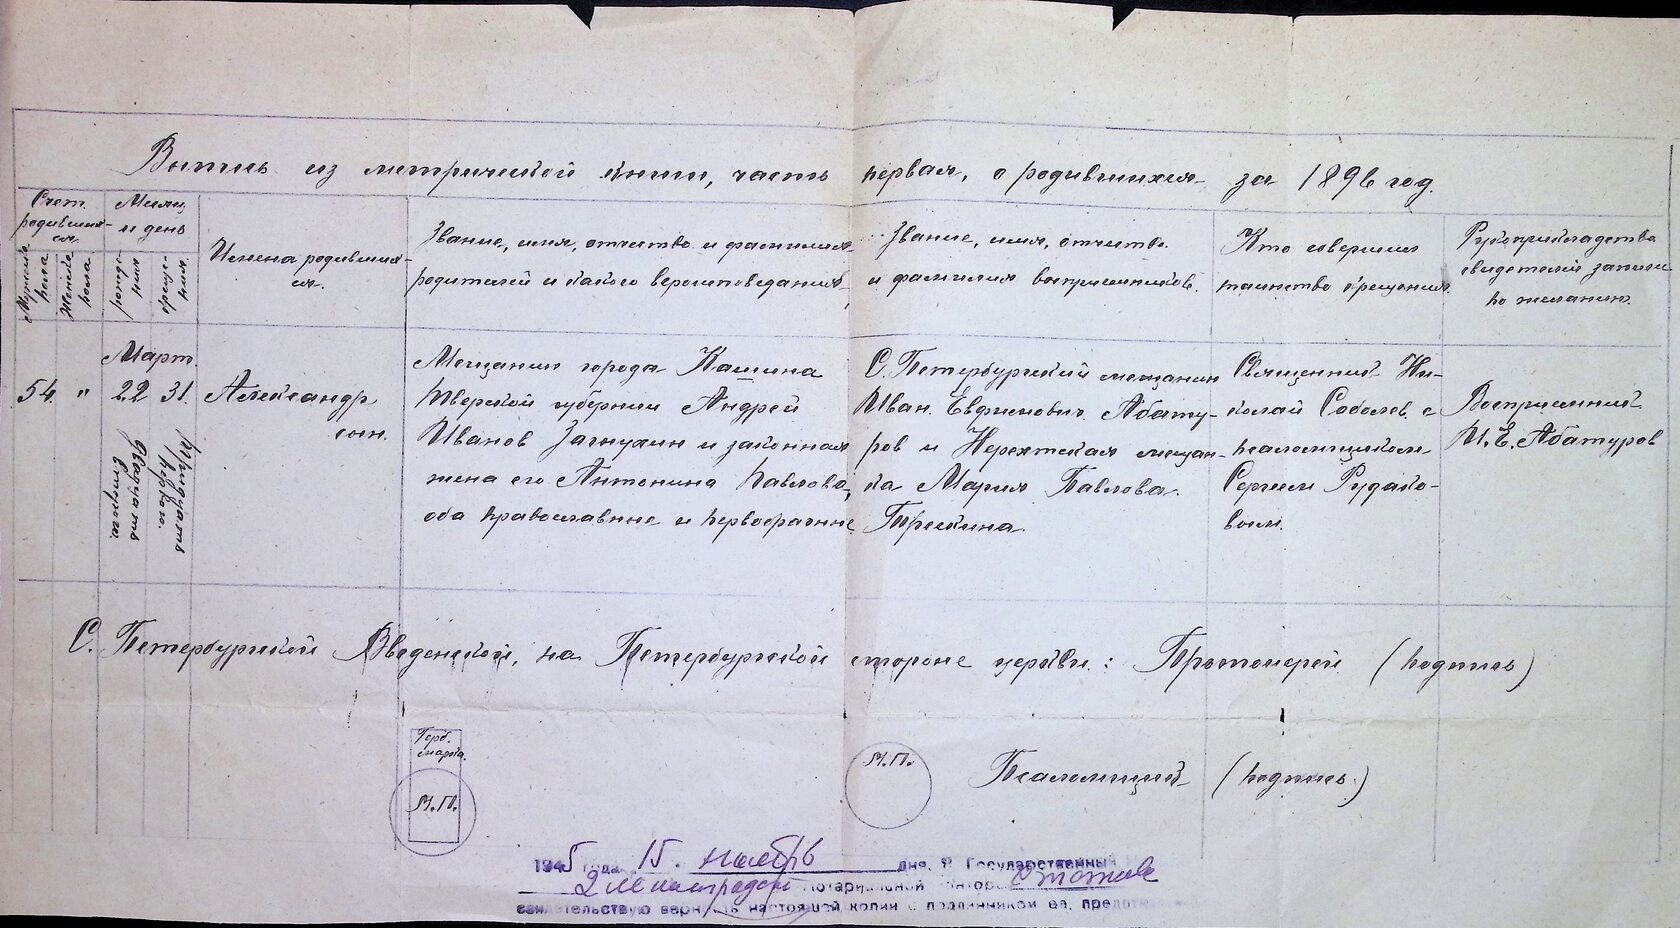 Выпись из метрической книги, часть первая, о родившихся за 1896 год.
Счет родивших-ся.
Мужеска пола
Женска пола
Месяц и день
рожде-ния
креще-ния.
Имена родивших-
ся.
Звание, имя, отчество и фамилия
родителей и какого вероисповедания
Звание, имя, отчество
и фамилия восприемников.
Кто совершил
таинство крещения.
Рукоприкладство
свидетелей записи
по желанию.
54. " Март. 22 31.
Двадцать второго.
Тридцать первого.
Александр
сын.
Мещанин города Кашина
Тверской губернии Андрей
Иванов Загнухин и законная
жена его Антонина Павлова,
оба православные и первобрачные
С. Петербургский мещанин
Иван Евфимович Абату-
ров и Нерехтская мещан-
ка Мария Павлова
Священник Ни-
колай Соболев с
псаломщиком
Сергием Рудако-
вым.
Восприемник
И. Е. Абатуров
С. Петербургской Введенской, на Петербургской стороне церкви: Протоиерей (подпись)
Герб.
марка.
М.П.
М.П.
Псаломщик (подпись.)
1945 года 15. ноября дня, Я Государственный
2 Ленинградской нотариальной конторы
свидетельствую верность настоящей копии с подлинником ея,